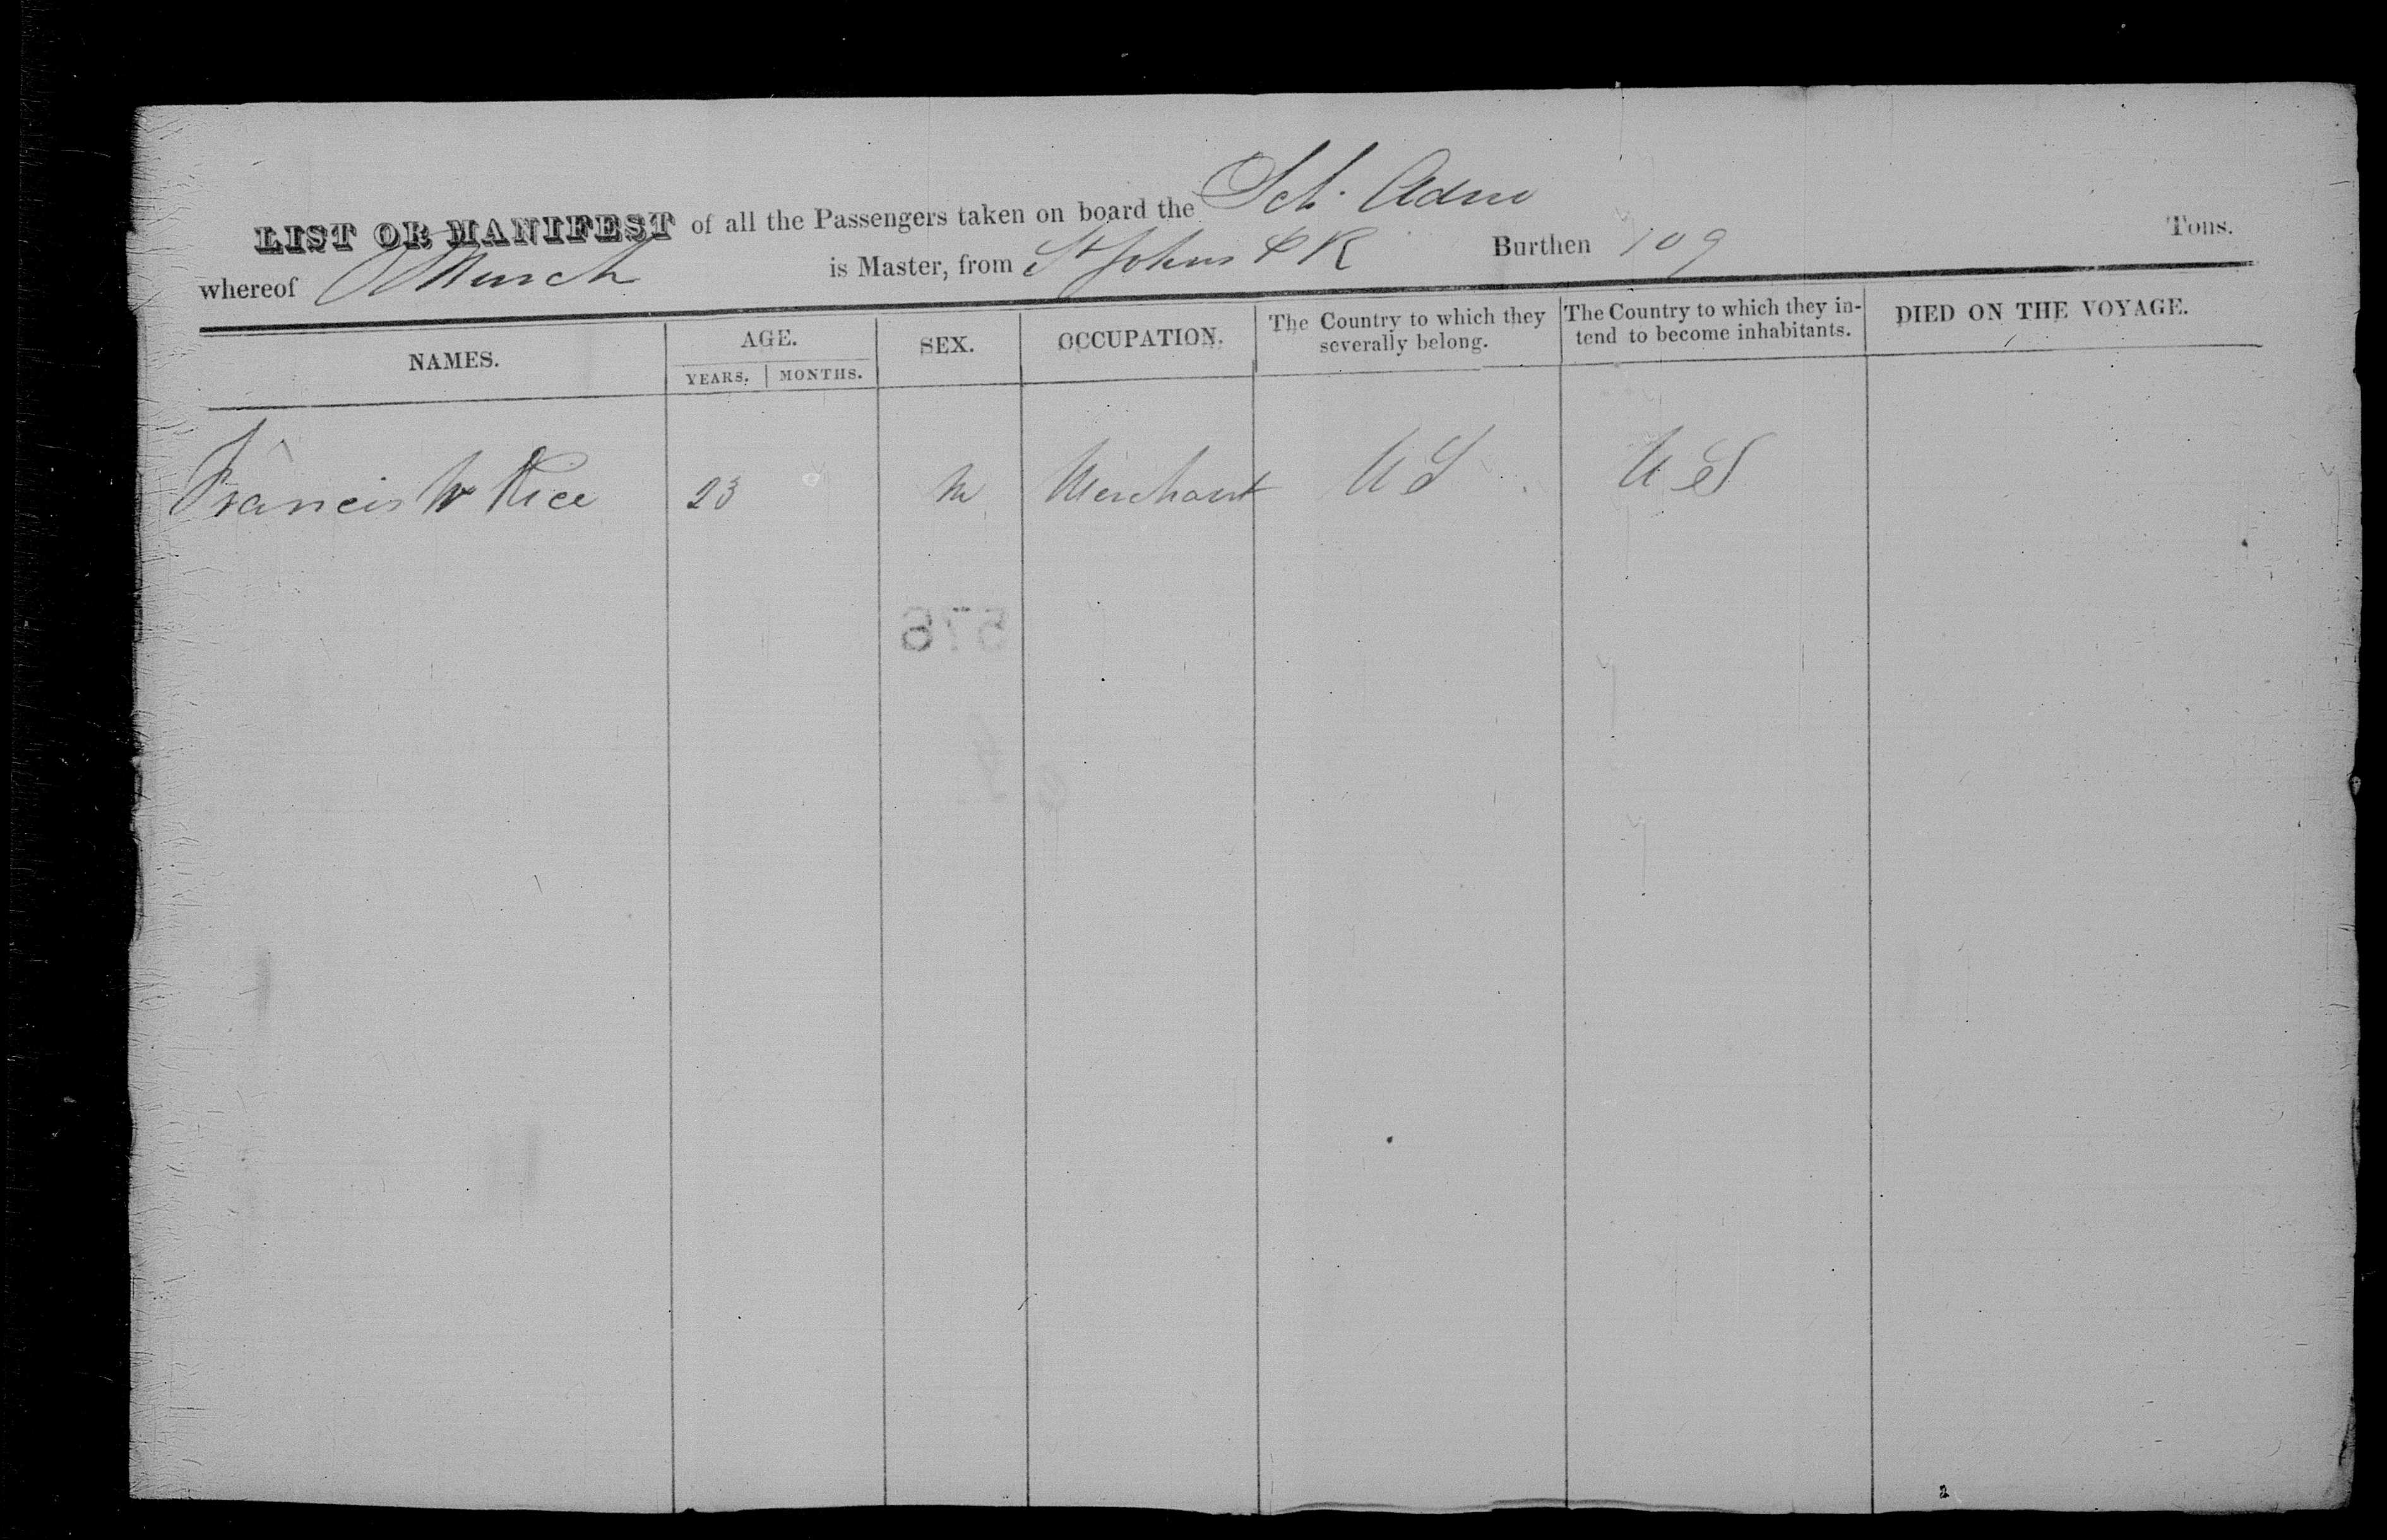 LIST OR MANIFEST of all the Passengers taken on board the Sch. Adno
whereof Murch is Master, from St Johns P R Burthen 109 Tons.
NAMES. AGE. SEX. OCCUPATION. The Country to which they severally belong. The Country to which they in-tend to become inhabitants. DIED ON THE VOYAGE.
YEARS. MONTHS.
Francis W Rice 23 M Merchant U S U S
576